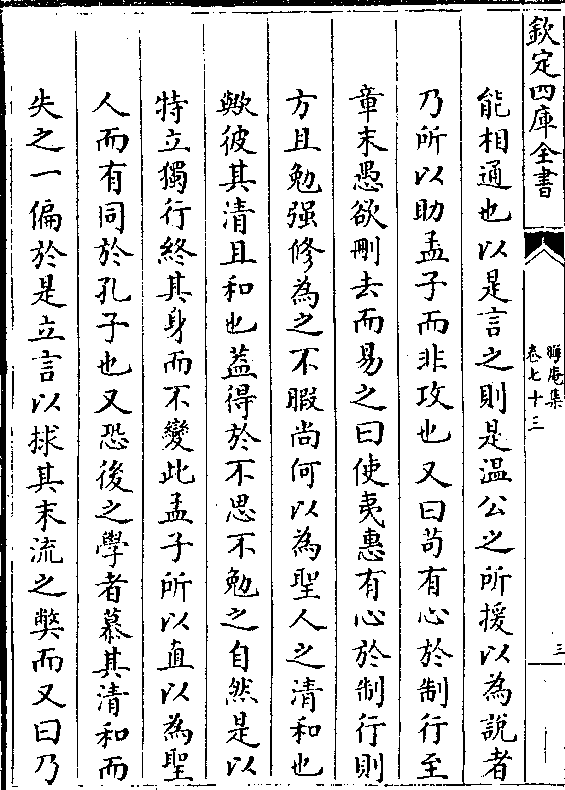 欽定四庫全書
晦庵集
卷七十三
三
能相通也以是言之則是温公之所援以為說者
乃所以助孟子而非攻也又曰苟有心於制行至
章末愚欲刪去而易之曰使夷惠有心於制行則
方且勉强修為之不暇尚何以為聖人之清和也
歟彼其清且和也葢得於不思不勉之自然是以
特立獨行終其身而不變此孟子所以直以為聖
人而有同於孔子也又恐後之學者慕其清和而
失之一偏於是立言以捄其末流之弊而又曰乃